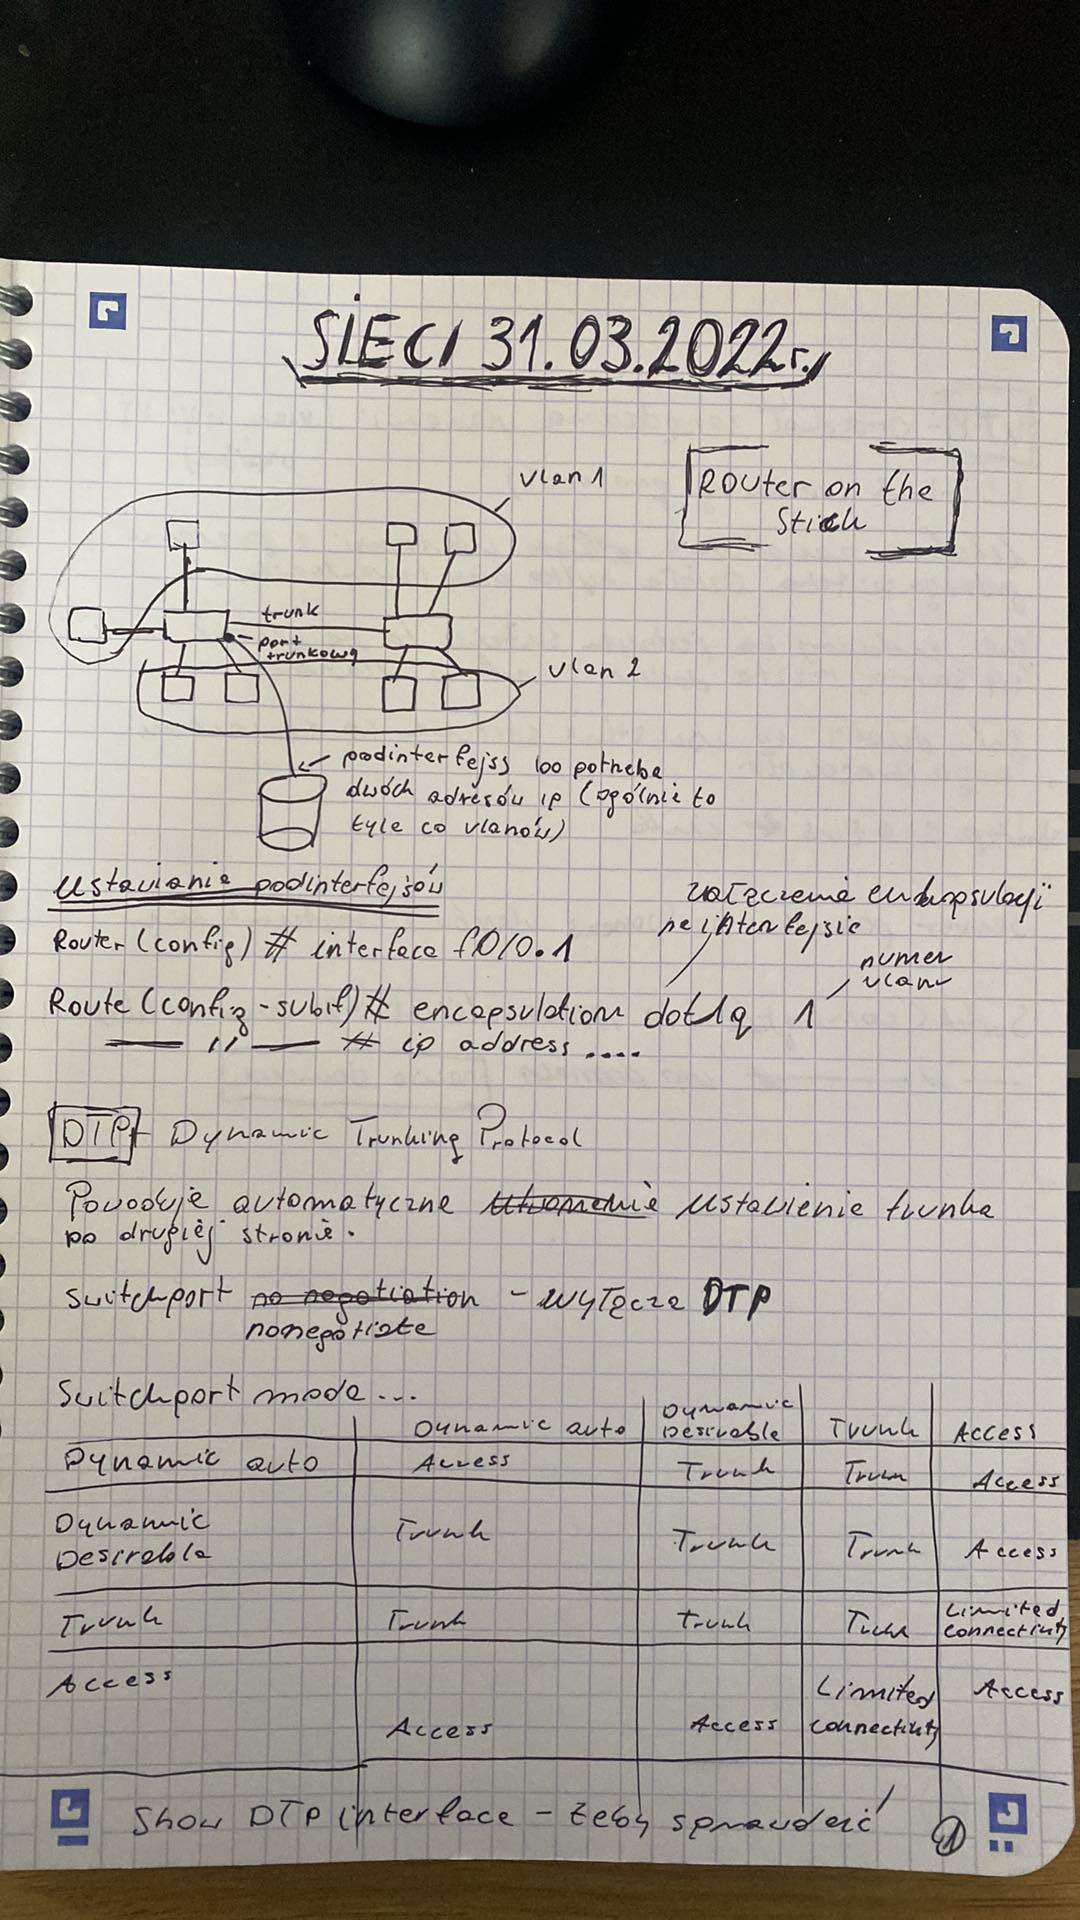 SIECI 31.03.2022r.
Router on the
Stick
vlan 1
trunk
port
trunkowy
vlan 2
podinterfejss bo potrzeba
dwóch adresów ip (ogólnie to
tyle co vlanów)
Ustawianie podinterfejsów
załączenie enkapsulacji
na interfejsie
Router (config) # interface f0/0.1
numer
vlanu
Route (config-subif) # encapsulation dot1q 1
—— ,, —— # ip address ....
DTP - Dynamic Trunking Protocol
Powoduje automatyczne ustawienie trunka
po drugiej stronie.
switchport no negotiation - wyłącza DTP
nonegotiate
Switchport mode ...
Dynamic auto Dynamic Desirable Trunk Access
Dynamic auto Access Trunk Trunk Access
Dynamic Desirable Trunk Trunk Trunk Access
Trunk Trunk Trunk Trunk Limited connectivity
Access Access Access Limited connectivity Access
Show DTP interface - żeby sprawdzić
1